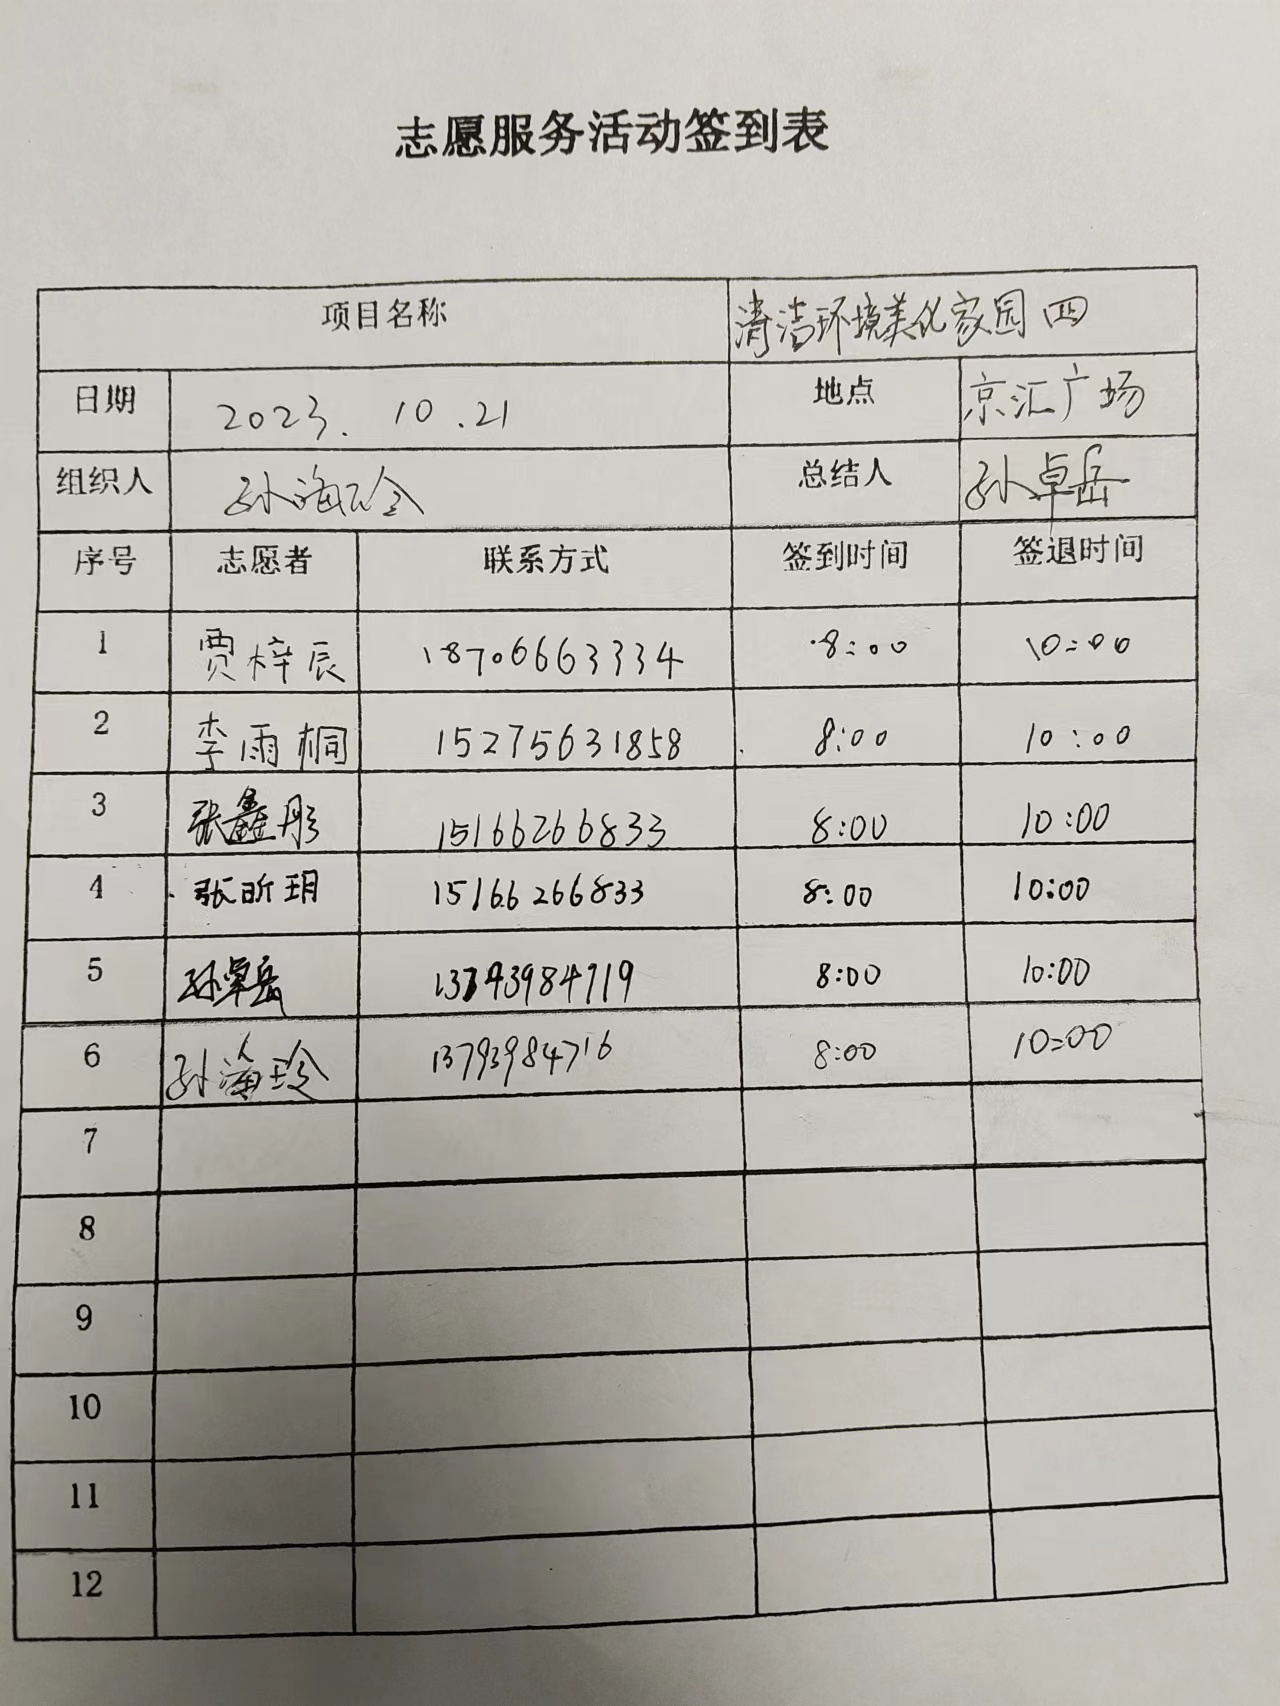 志愿服务活动签到表
项目名称 清洁环境美化家园 四
日期 2023.10.21 地点 京汇广场
组织人 孙海玲 总结人 孙卓岳
序号 志愿者 联系方式 签到时间 签退时间
1 贾梓辰 18706663334 8:00 10:00
2 李雨桐 15275631858 8:00 10:00
3 张鑫彤 15166266833 8:00 10:00
4 张昕玥 15166266833 8:00 10:00
5 孙卓岳 13793984719 8:00 10:00
6 孙海玲 13793984716 8:00 10:00
7
8
9
10
11
12